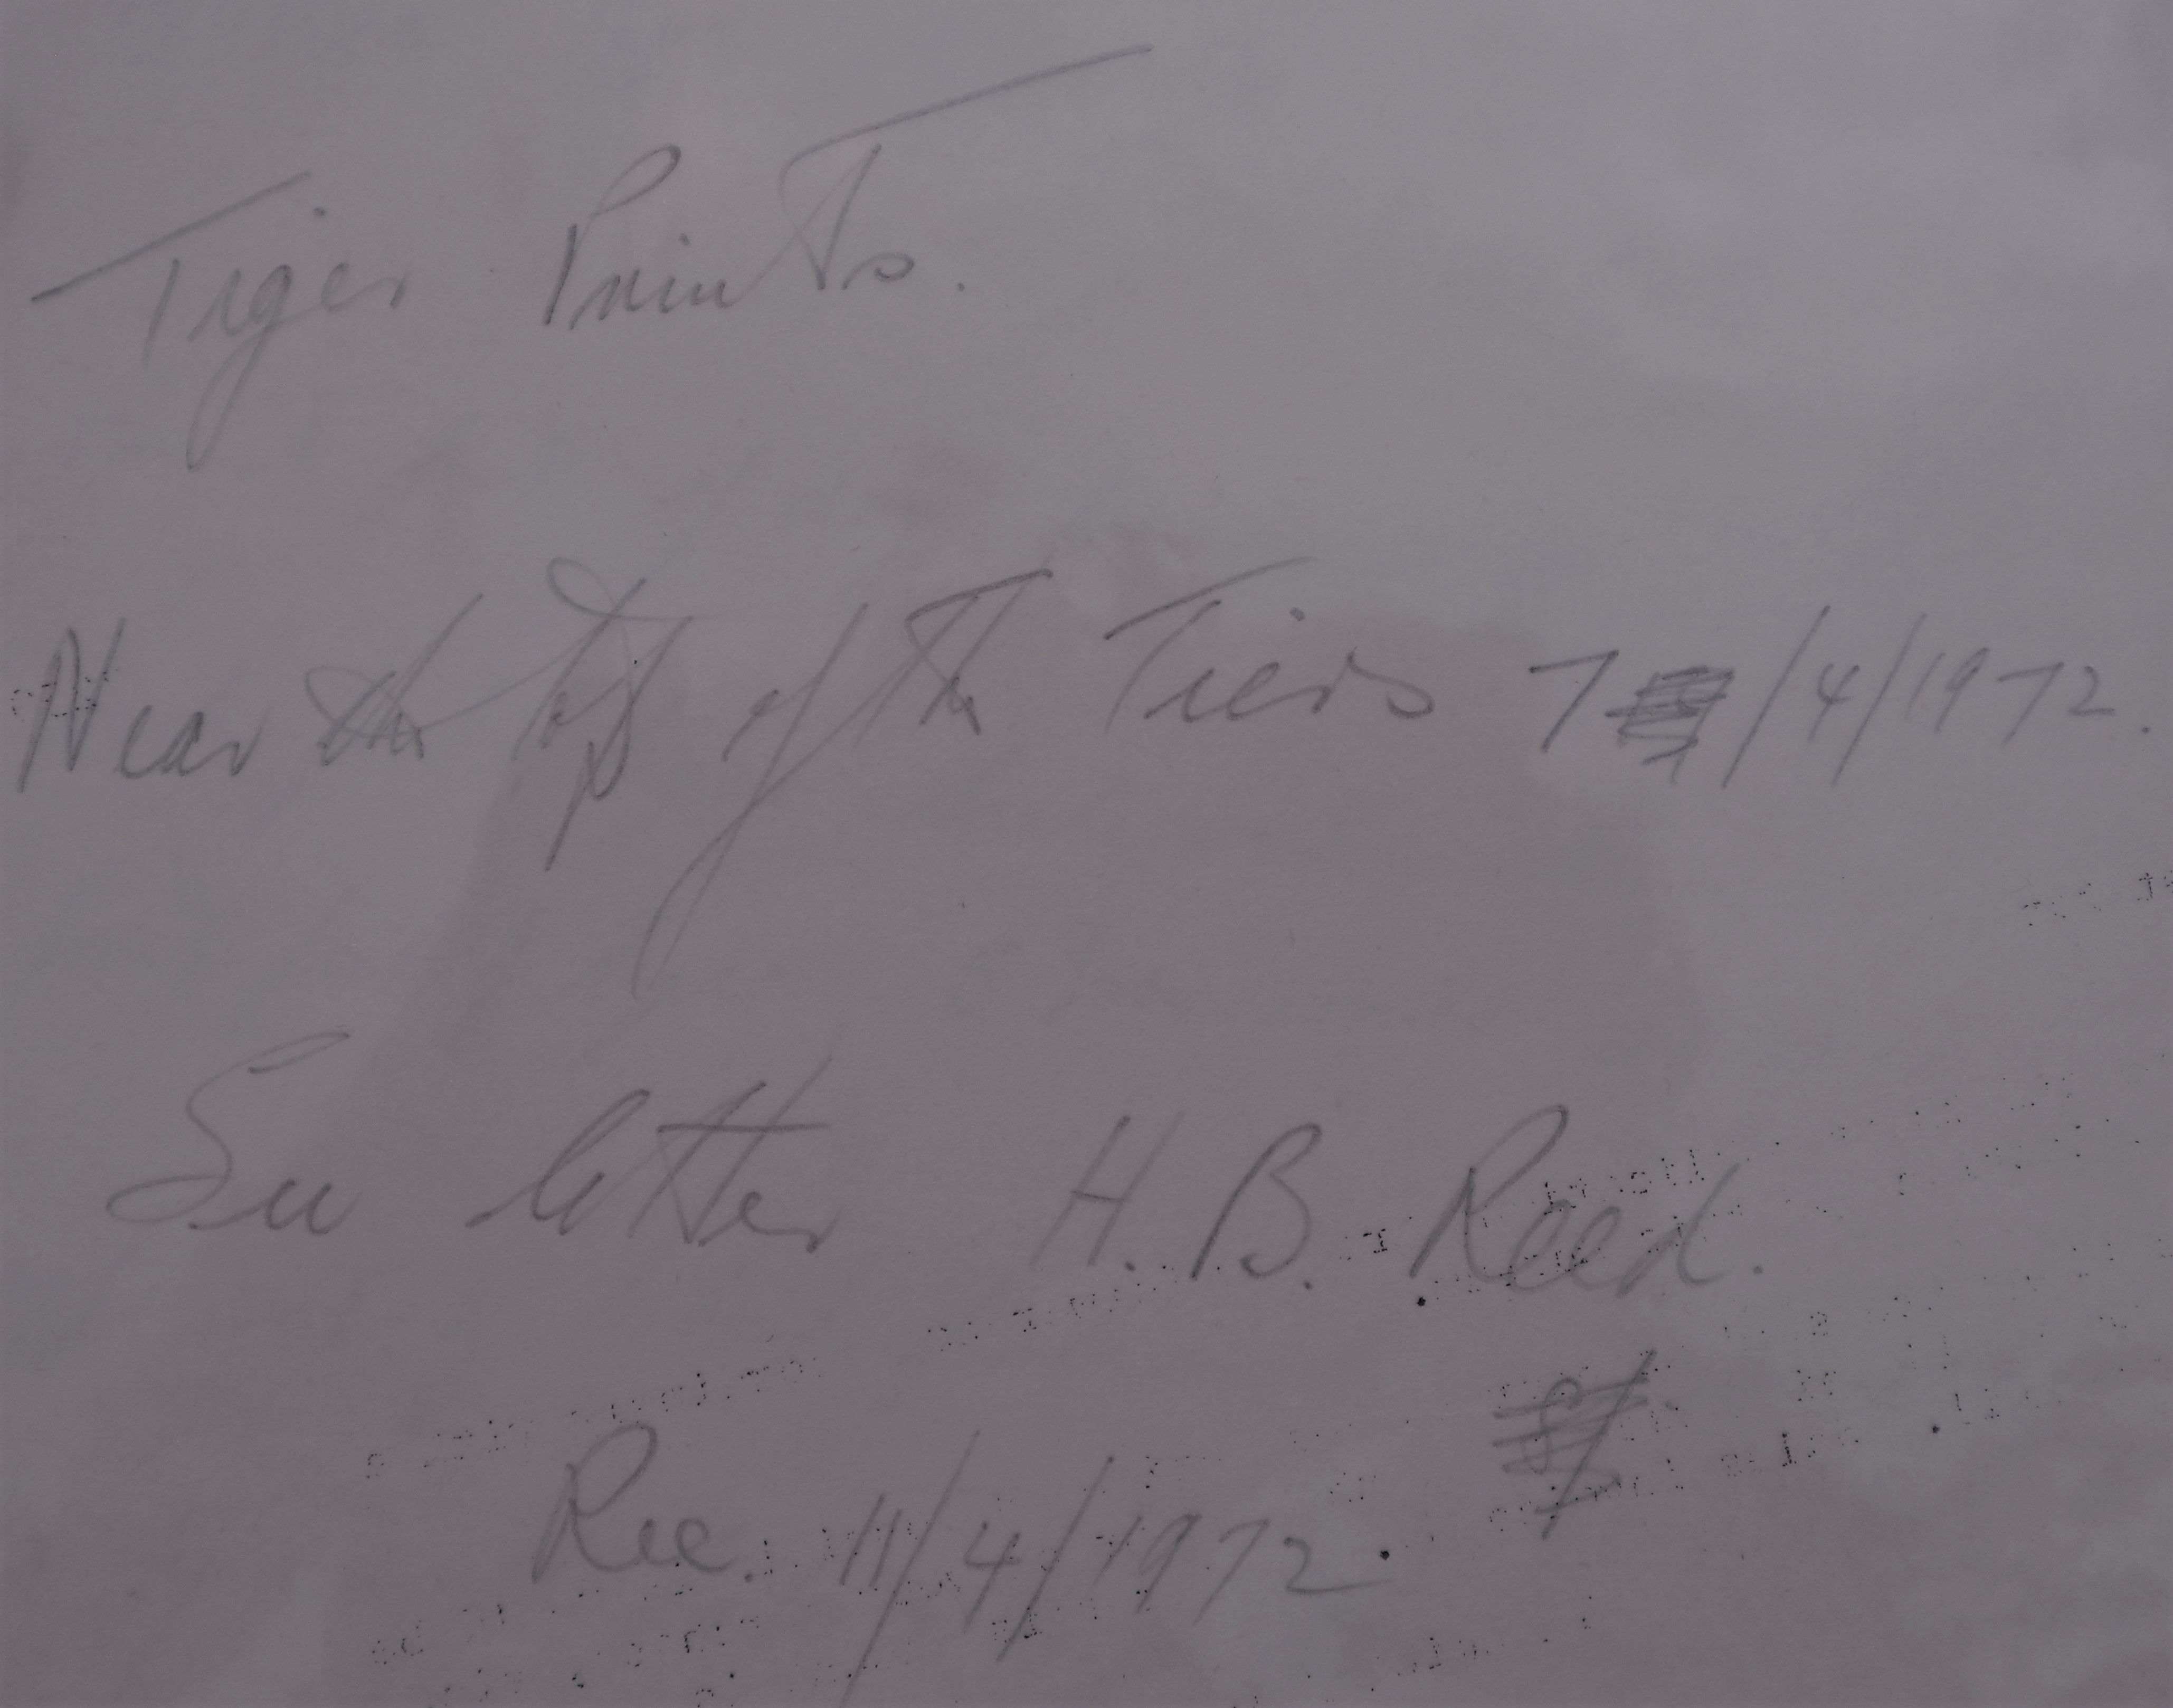 Tiger Prints.
Near the top of the Tiers 7/4/1972.
See letter H. B. Reed.
Rec. 11/4/1972.